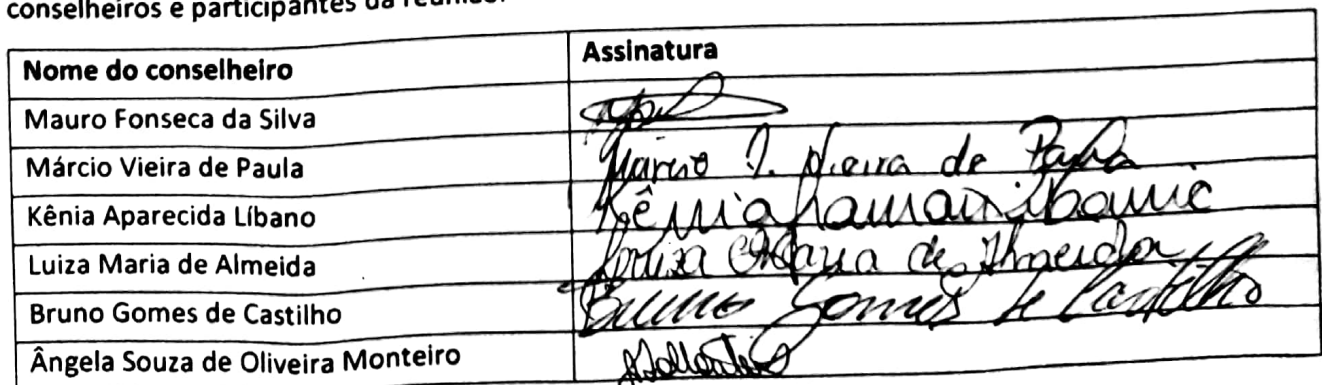 conselheiros e participantes da
Nome do conselheiro Assinatura
Mauro Fonseca da Silva
Márcio Vieira de Paula Márcio J. Vieira de Paula
Kênia Aparecida Líbano Kênia
Luiza Maria de Almeida Luiza Maria de Almeida
Bruno Gomes de Castilho Bruno Gomes de Castilho
Ângela Souza de Oliveira Monteiro